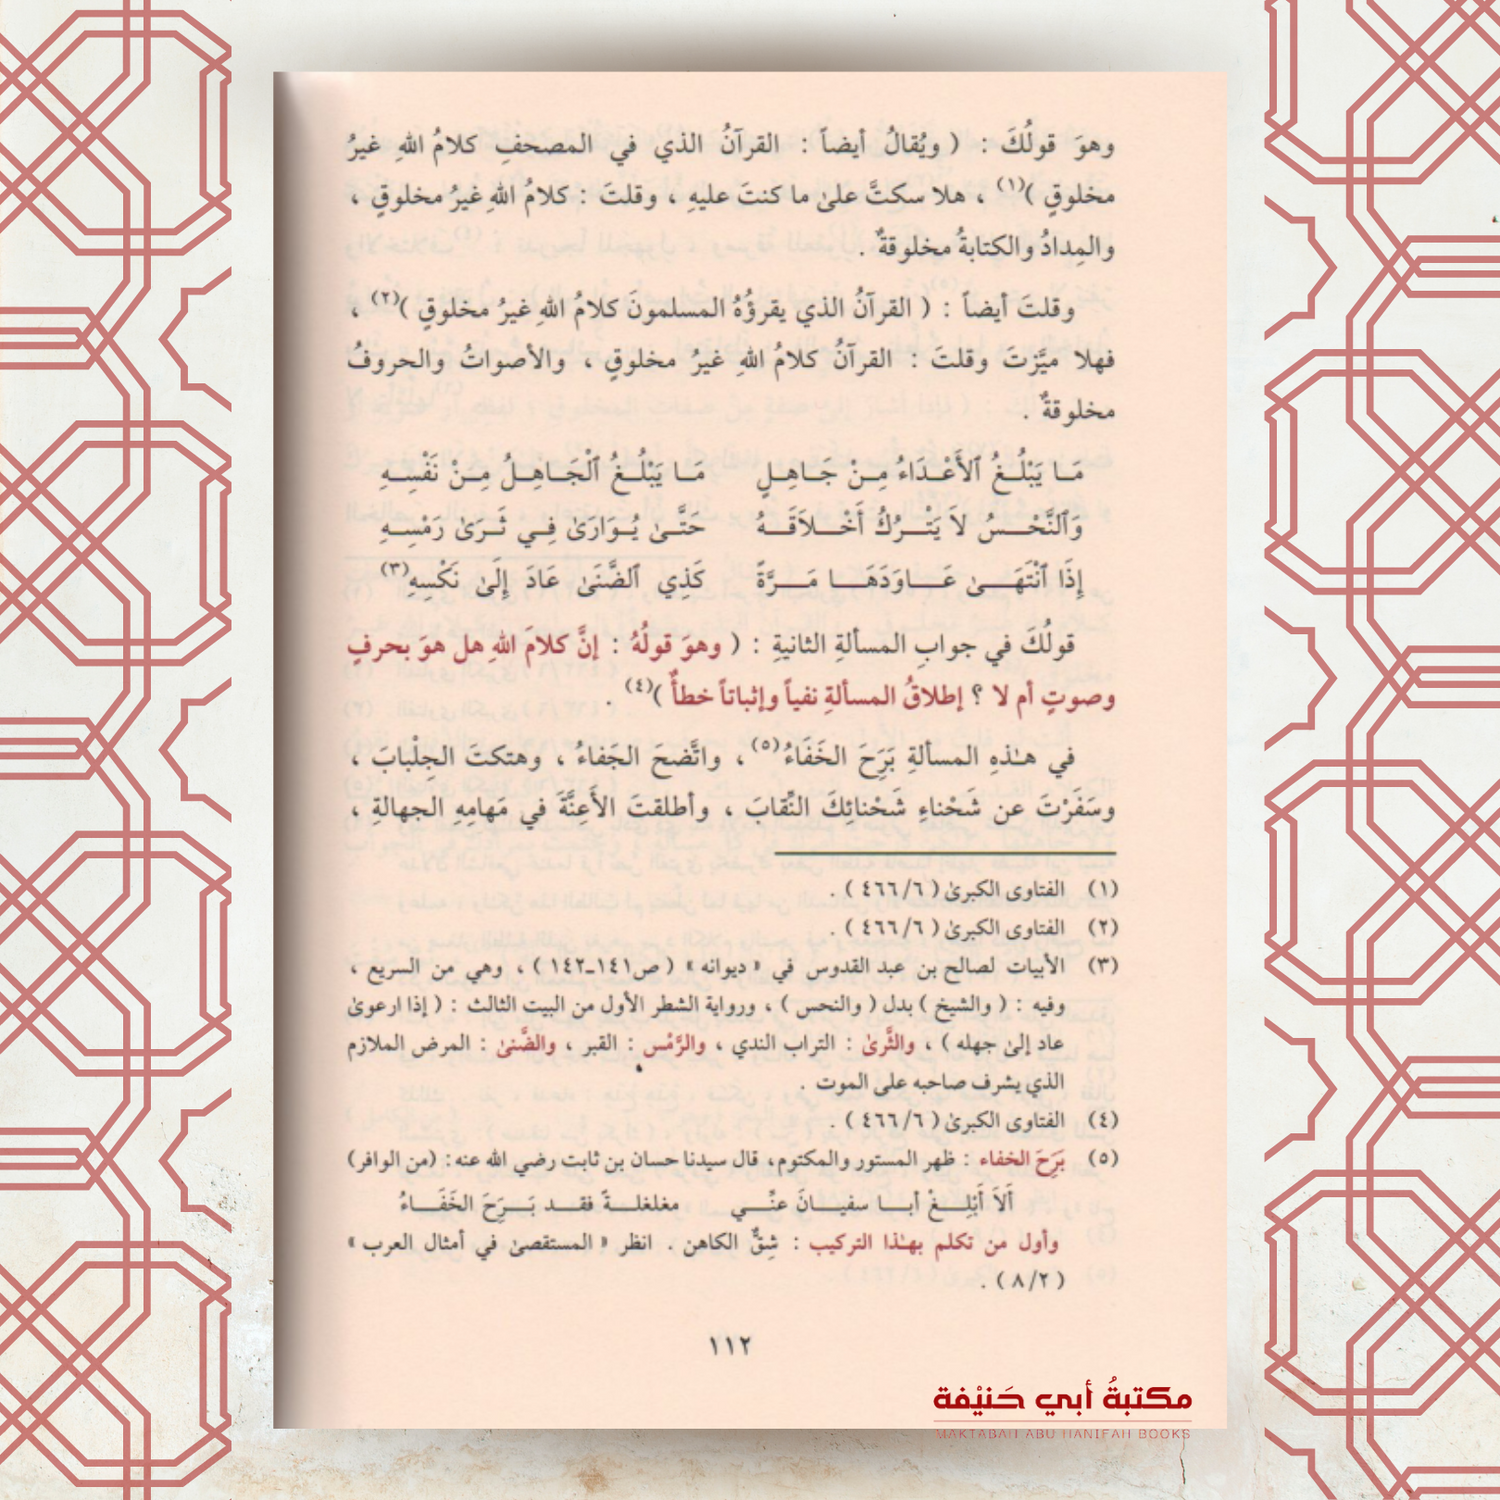 وهوَ قولُكَ : ( ويُقالُ أيضاً : القرآنُ الذي في المصحفِ كلامُ اللهِ غيرُ
مخلوقٍ )(١) ، هلا سكتَّ علىٰ ما كنتَ عليهِ ، وقلتَ : كلامُ اللهِ غيرُ مخلوقٍ ،
والمِدادُ والكتابةُ مخلوقةٌ .
وقلتَ أيضاً : ( القرآنُ الذي يقرؤُهُ المسلمونَ كلامُ اللهِ غيرُ مخلوقٍ )(٢) ،
فهلا ميَّزتَ وقلتَ : القرآنُ كلامُ اللهِ غيرُ مخلوقٍ ، والأصواتُ والحروفُ
مخلوقةٌ .
مَا يَبْلُغُ ٱلأَعْدَاءُ مِنْ جَاهِلٍ مَا يَبْلُغُ ٱلْجَاهِلُ مِنْ نَفْسِهِ
وَٱلنَّحْسُ لاَ يَتْرُكُ أَخْلاَقَهُ حَتَّىٰ يُوَارَىٰ فِي ثَرَىٰ رَمْسِهِ
إِذَا ٱنْتَهَىٰ عَاوَدَهَا مَرَّةً كَذِي ٱلضَّنَىٰ عَادَ إِلَىٰ نَكْسِهِ(٣)
قولُكَ في جوابِ المسألةِ الثانيةِ : ( وهوَ قولُهُ : إنَّ كلامَ اللهِ هل هوَ بحرفٍ
وصوتٍ أم لا ؟ إطلاقُ المسألةِ نفياً وإثباتاً خطأٌ )(٤) .
في هٰذهِ المسألةِ بَرَِحَ الخَفَاءُ(٥) ، واتَّضحَ الجَفاءُ ، وهتكتَ الجِلْبابَ ،
وسَفَرْتَ عن شَحْناءِ شَحْنائِكَ النِّقابَ ، وأطلقتَ الأَعِنَّةَ في مَهامِهِ الجهالةِ ،
(١) الفتاوى الكبرىٰ ( ٤٦٦/٦ ) .
(٢) الفتاوى الكبرىٰ ( ٤٦٦/٦ ) .
(٣) الأبيات لصالح بن عبد القدوس في « ديوانه » ( ص١٤١-١٤٢ ) ، وهي من السريع ،
وفيه : ( والشيخ ) بدل ( والنحس ) ، ورواية الشطر الأول من البيت الثالث : ( إذا ارعوىٰ
عاد إلىٰ جهله ) ، والثَّرىٰ : التراب الندي ، والرَّمْس : القبر ، والضَّنىٰ : المرض الملازم
الذي يشرف صاحبه على الموت .
(٤) الفتاوى الكبرىٰ ( ٤٦٦/٦ ) .
(٥) بَرَِحَ الخفاء : ظهر المستور والمكتوم، قال سيدنا حسان بن ثابت رضي الله عنه: (من الوافر)
أَلاَ أَبْلِغْ أبا سفيانَ عنِّي مغلغلةً فقد بَرَِحَ الخَفَاءُ
وأول من تكلم بهٰذا التركيب : شِقٌّ الكاهن . انظر « المستقصىٰ في أمثال العرب »
( ٨/٢ ) .
١١٢
مكتبةُ أبي حَنيْفة
MAKTABAH ABU HANIFAH BOOKS